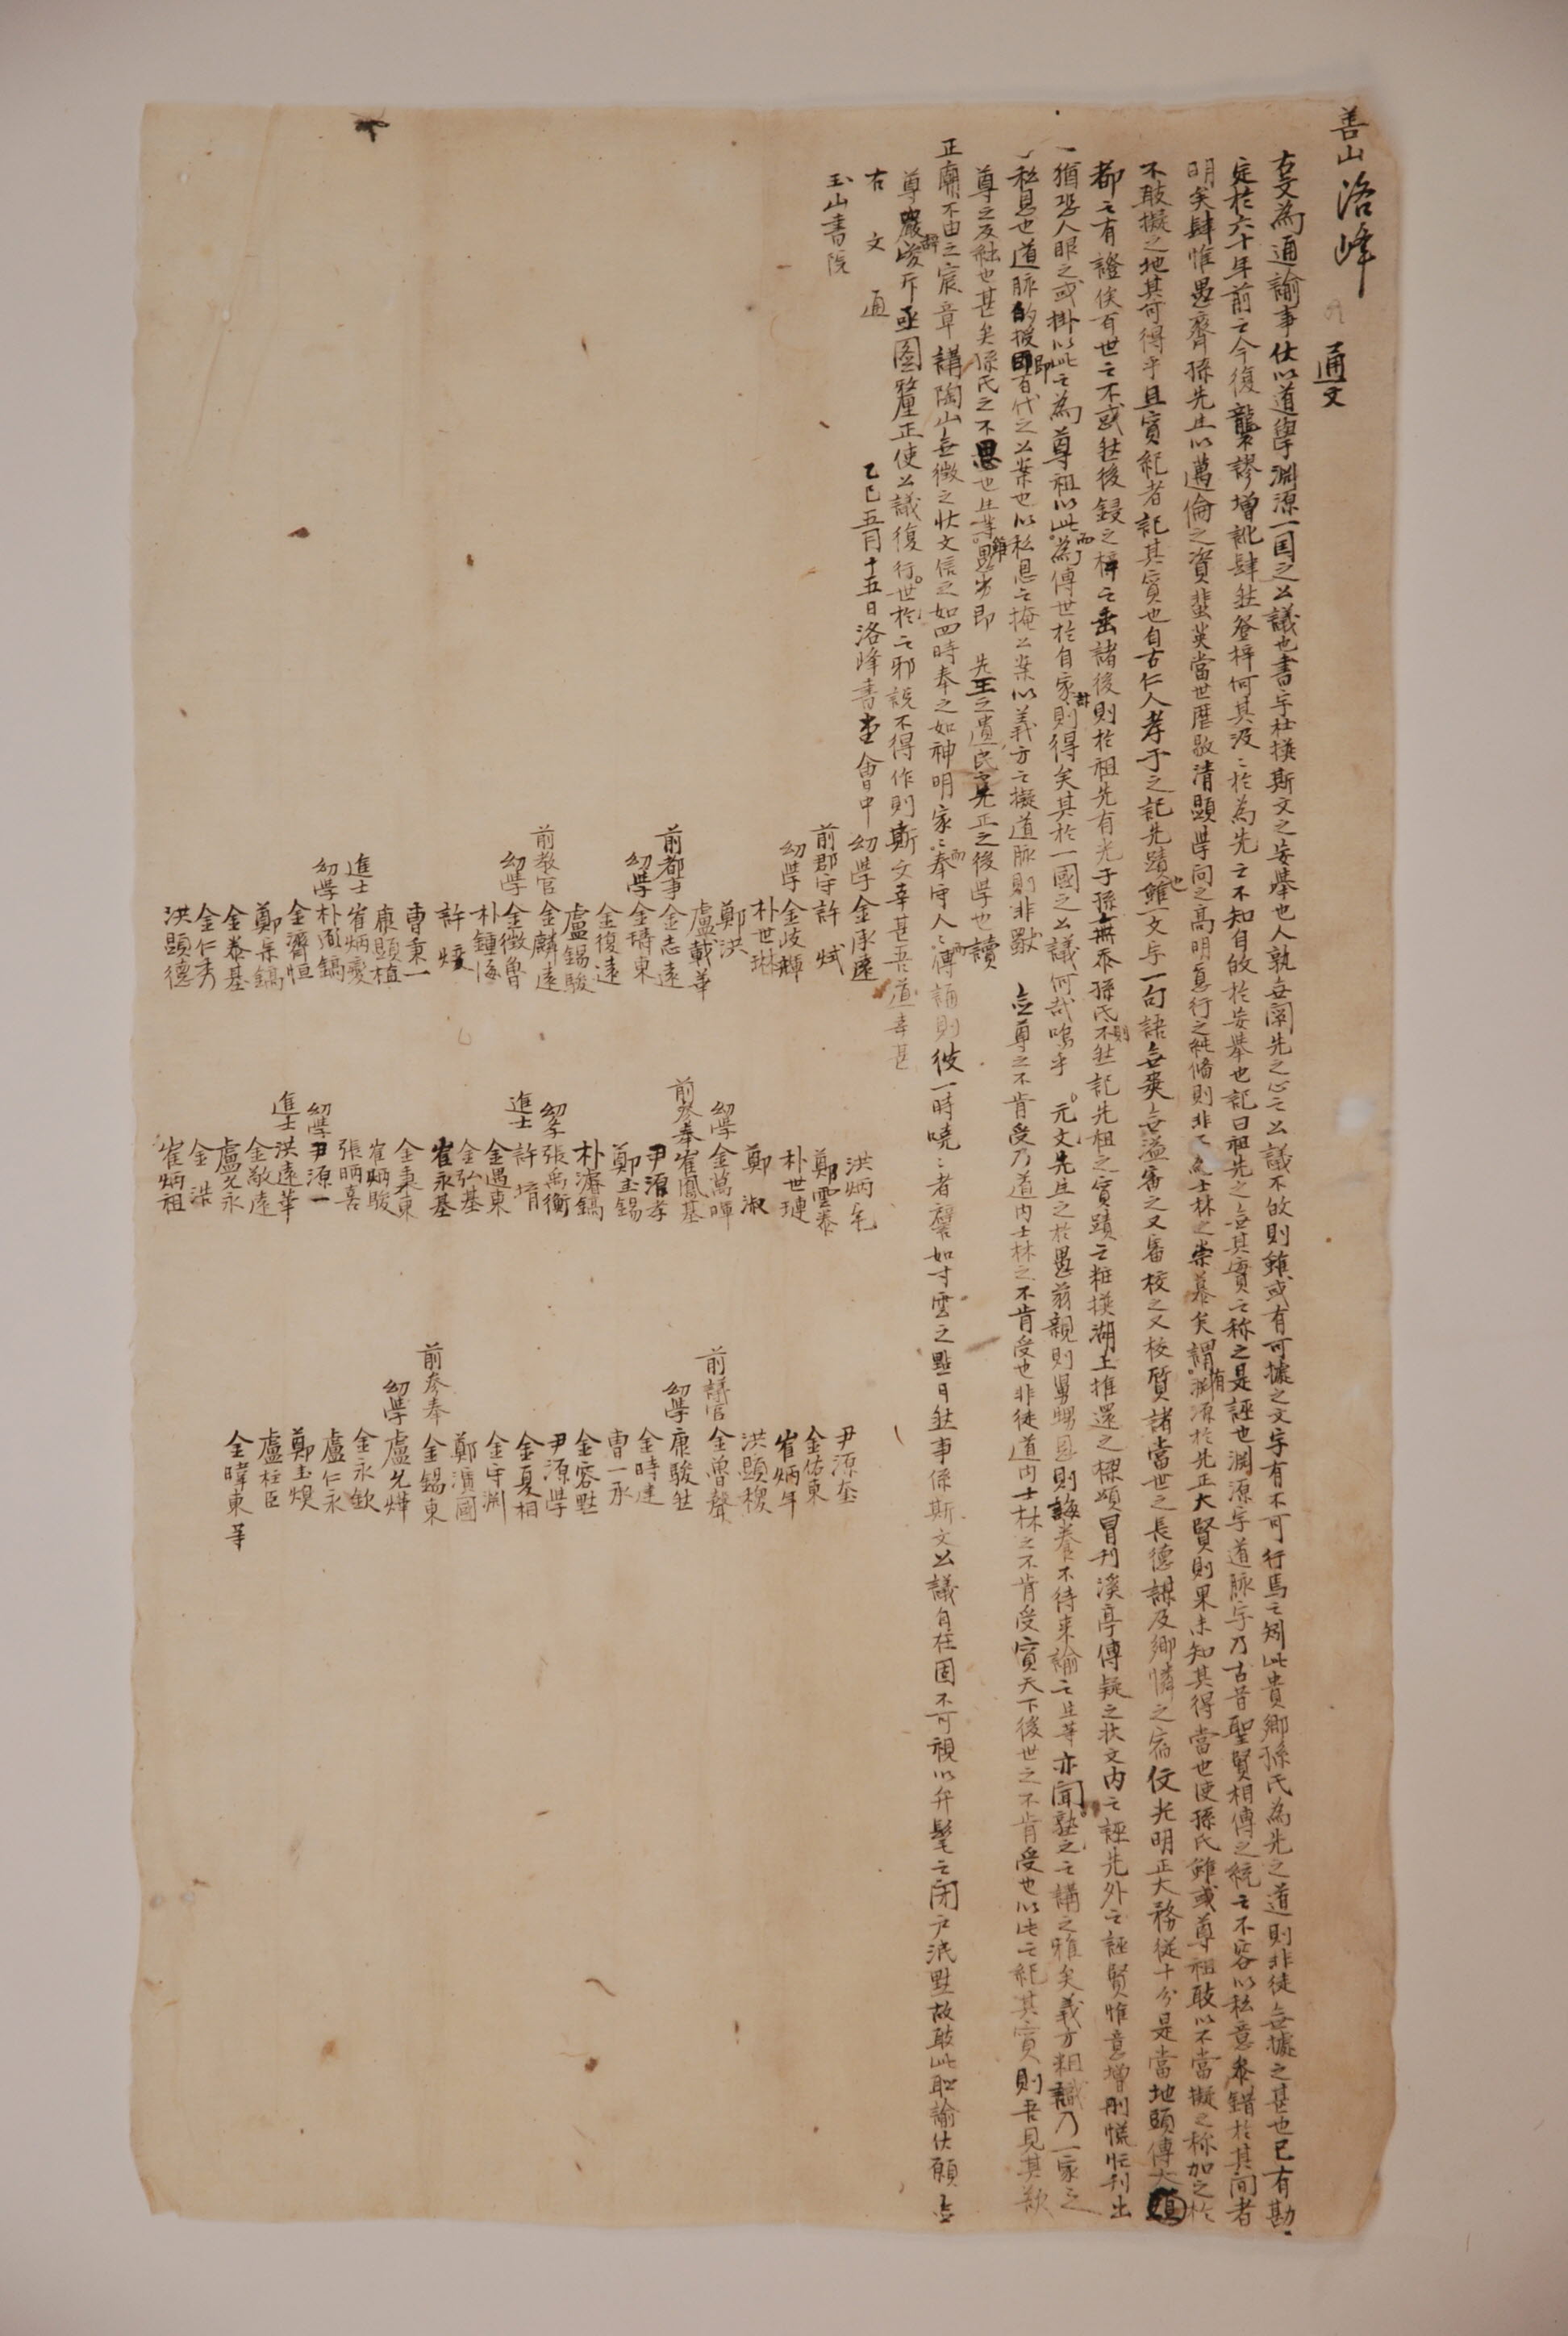 善山洛峰 通文
右文爲通諭事伏以道學淵源一国之公議也書字杜撰斯文之妄擧也人孰無闡先之心而公議不故則雖或有可據之文字有不可行焉而矧此貴鄉孫氏爲先之道則非徒無據之甚也已有勘
定於六十年前而今復襲謬增訛肆然登梓何其汲〻於爲先而不知自故於妄擧也記曰祖先之無其實而称之是誣也淵源字道脉字乃古昔聖賢相傳之統而不容以私意參錯於其間者
明矣肆惟愚齋孫先生以邁倫之資蜚英當世歷敭清顯學问之高明怠行之純備則非不爲士林之崇慕矣謂有淵源於先正大賢則果未知其得當也使孫氏雖或尊祖敢以不當擬之称加之於
不敢擬之地其可得乎且實紀者記其實也自古仁人孝子之記先蹟也雖一文字一句語無爽無溢審之又審校之又校質諸當世之長德謀及鄉隣之宿仅光明正大務從十分是當地頭傳大
都而有證俟百世而不惑然後鋟之梓而垂諸後則於祖先有光于孫無忝孫氏則不然記先祖之實蹟而粧撰湖上推還之樑頌冒刊溪亭傳疑之状文内而誣先外而誣賢惟意增刪慌忙刊出
猶恐人眼之或掛以此而爲尊祖以此而爲傳世於自家計則得矣其於一國之公議何哉嗚乎 元文先生之於愚翁親則舅甥恩則誨養不待来諭而生等亦聞熟之而講之雅矣義方粗識乃一家之
私恩也道脉的授即百代之公案也以私恩而掩公案以義方而擬道脉則非歇 無尊之不肯受乃道内士林之不肯受也非徒道内士林之不肯受實天下後世之不肯受也以此而紀其實則吾見其欲
尊之反絀也甚矣孫氏之不思也生等雖愚劣即 先王之遺民先正之後學也讀
正廟不由之宸章講陶山無徵之状文信之如四時奉之如神明家〻而奉守人〻而溥誦則彼一時嘵〻者譬如寸雲之點日然事係斯文公議自在固不可視以弁髦而闭户泯默故敢此聀諭伏願 無
尊嚴辭峻斥亟圖釐正使公議復行世於而邪說不得作則斯文幸甚吾道幸甚
右 文 通
玉山書院
乙巳五月十五日洛峰書堂會中
幼學 金承遠
前郡守 許 斌
幼學 金岐輝
朴世琳
鄭 洪
盧載華
前都事 金志遠
幼學 金璹東
金復遠
盧錫駿
前教官 金麟遠
幼學 金徵魯
朴鍾海
許 㷜
曺秉一
康顯植
進士 崔炳夔
幼學 朴胤鎬
金濟恒
鄭㒒鎬
金泰基
金仁秀
洪顯德
洪炳宅
鄭雲泰
朴世璉
鄭 淑
幼學 金萬暉
前參奉 崔鳳基
尹滆孝
鄭圭錫
朴濬鎬
幼學 張禹衡
進士 許 堉
金遇東
金弘基
崔永基
金秉東
崔炳駿
張晒喜
幼學 尹源一
進士 洪遠華
金敬遠
盧允永
金 浩
崔炳祖
尹源奎
金佑東
崔炳年
洪顯稷
前議官 金曾聲
幼學 康駿然
金時達
曺一承
金容默
尹源學
金夏相
金守淵
鄭濱國
前參奉 金錫東
幼學 盧允燁
金永欽
盧仁永
鄭圭煥
盧柱臣
金暐東 等